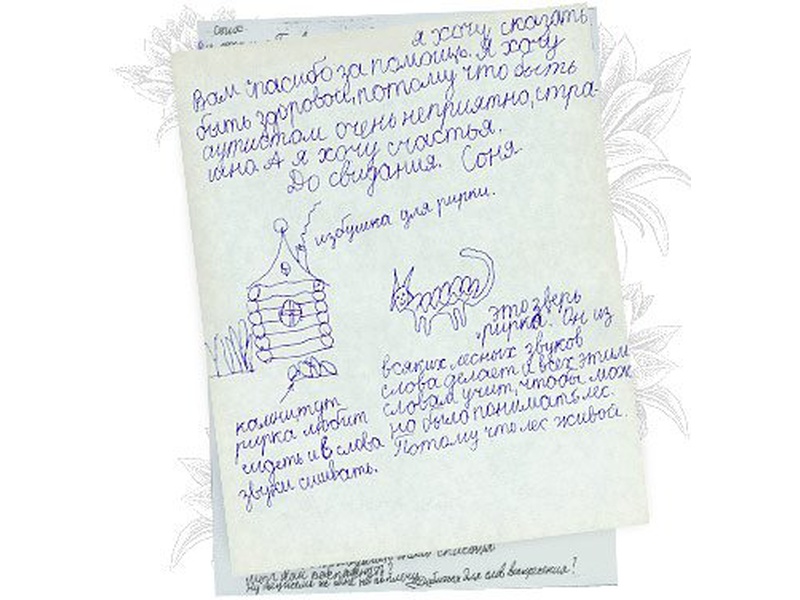 Я хочу сказать
Вам спасибо за помощь. Я хочу
быть здоровой, потому что быть
аутистом очень неприятно, стра-
шно. А я хочу счастья.
До свидания. Соня.
избушка для рирки.
это зверь
"рирка". Он из
всяких лесных звуков
слова делает и всех этим
словам учит, чтобы мож
но было понимать лес.
Потому что лес живой.
камни тут
рирка любит
сидеть и в слова
звуки сшивать.